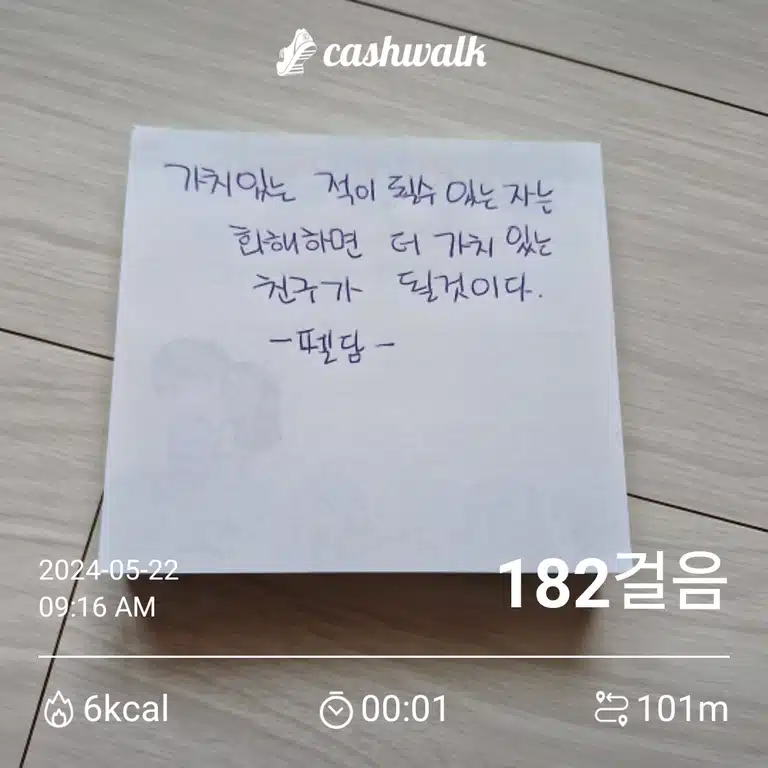 cashwalk
가치있는 적이 될수 있는 자는
화해하면 더 가치 있는
친구가 될것이다.
-펠담-
2024-05-22
09:16 AM
182걸음
6kcal 00:01 101m